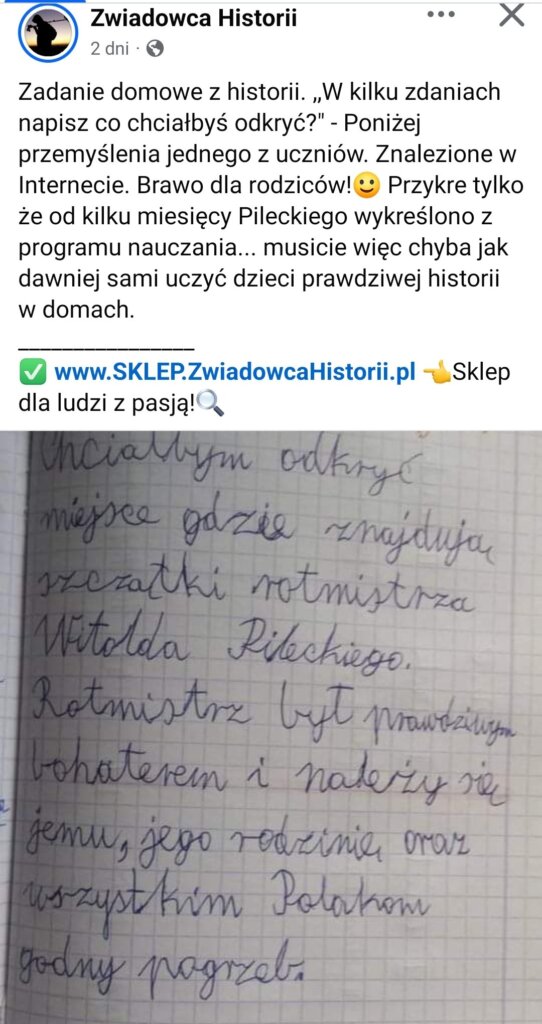 Zwiadowca Historii
2 dni
Zadanie domowe z historii. „W kilku zdaniach
napisz co chciałbyś odkryć?" - Poniżej
przemyślenia jednego z uczniów. Znalezione w
Internecie. Brawo dla rodziców!🙂 Przykre tylko
że od kilku miesięcy Pileckiego wykreślono z
programu nauczania... musicie więc chyba jak
dawniej sami uczyć dzieci prawdziwej historii
w domach.
________________
✅ www.SKLEP.ZwiadowcaHistorii.pl 👈Sklep
dla ludzi z pasją!🔍
Chciałbym odkryć
miejsce gdzie znajdują
szczątki rotmistrza
Witolda Pileckiego.
Rotmistrz był prawdziwym
bohaterem i należy się
jemu, jego rodzinie oraz
wszystkim Polakom
godny pogrzeb.